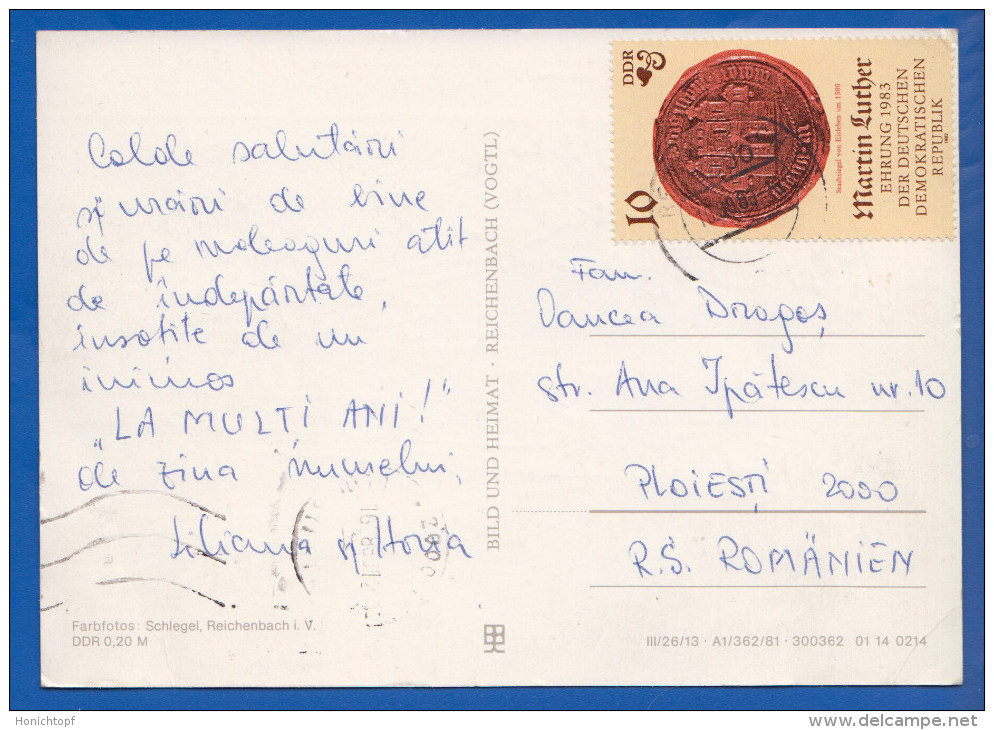 Calde salutări
și urări de bine
de pe meleaguri atît
de îndepărtate,
însoțite de un
inimos
„LA MULȚI ANI!"
de ziua numelui,
Liliana și Horia
Farbfotos: Schlegel, Reichenbach i. V.
DDR 0,20 M
BILD UND HEIMAT · REICHENBACH (VOGTL)
DDR
10
Stadtsiegel von Eisleben um 1500
Martin Luther
EHRUNG 1983
DER DEUTSCHEN
DEMOKRATISCHEN
REPUBLIK
1982
Fam.
Dancea Dragoș
str. Ana Ipătescu nr. 10
PLOIEȘTI 2000
R.S. ROMÂNIEN
III/26/13 · A1/362/81 · 300362 01 14 0214
Honichtopf
www.delcampe.net